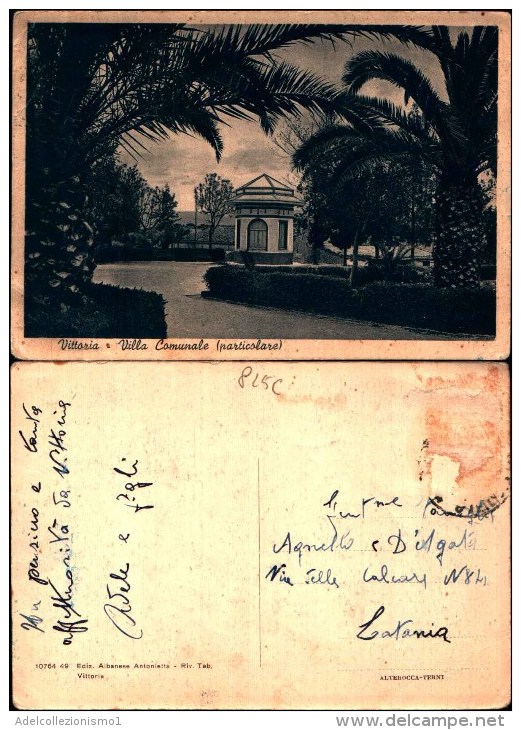 Vittoria - Villa Comunale (particolare)
815C
Un pensiero e tanta
affettuosità da Vittoria
Adele e figli
Gent.me
Agnello e D'Agata
Via delle Calcare N84
Catania
10764 49 Ediz. Albanese Antonietta - Riv. Tab.
Vittoria
ALTEROCCA-TERNI
Adelcollezionismo1